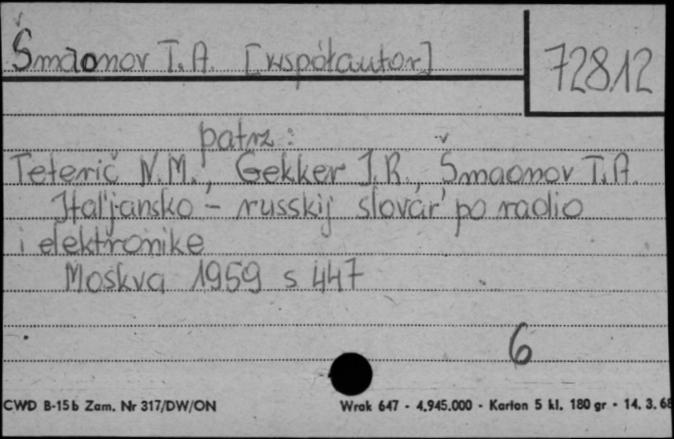 Šmaonov T.A. [współautor]
72812
patrz:
Teterič N.M., Gekker I.R., Šmaonov T.A.
Ital'jansko - russkij slovar' po radio
i elektronike
Moskva 1959 s 447
6
CWD B-15b Zam. Nr 317/DW/ON
Wrak 647 - 4.945.000 - Karton 5 kl. 180 gr - 14. 3. 68